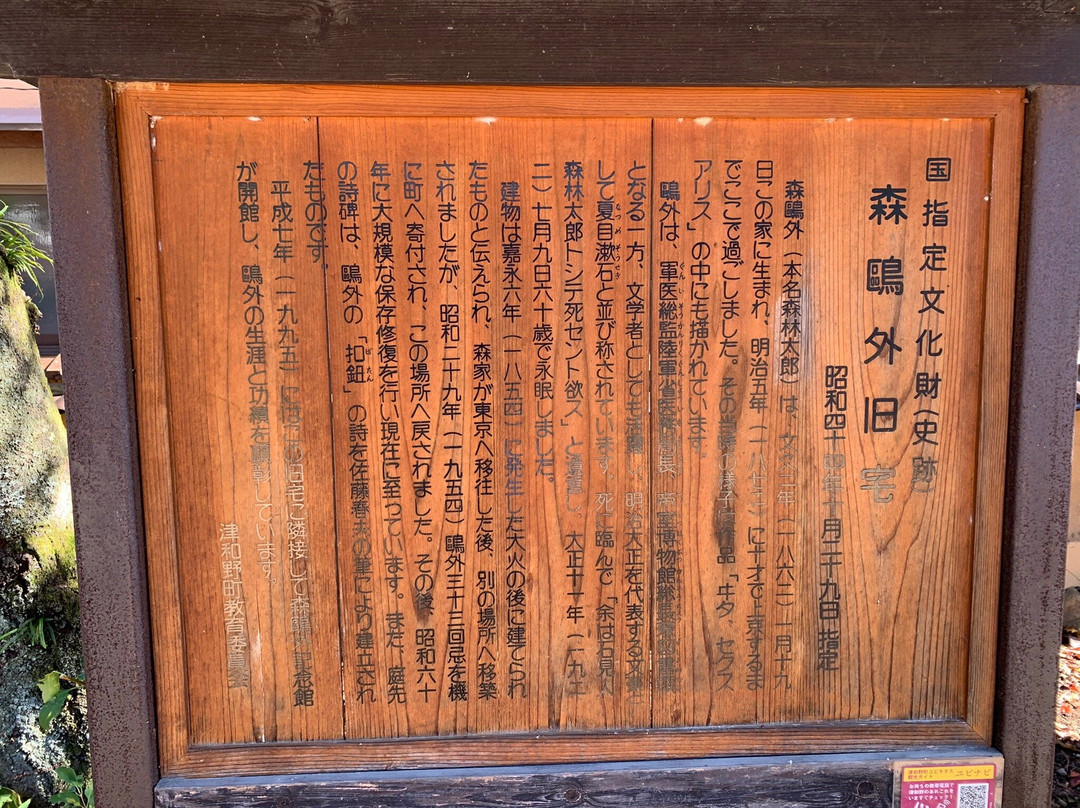 国指定文化財（史跡）
森鷗外旧宅
昭和四十四年十月二十九日 指定
森鷗外（本名森林太郎）は、文久二年（一八六二）一月十九
日この家に生まれ、明治五年（一八七二）に十才で上京するま
でここで過ごしました。その当時の様子は作品「ヰタ、セクス
アリス」の中にも描かれています。
鷗外は、軍医総監陸軍省医務局長、帝室博物館総長兼図書頭
となる一方、文学者としても活躍し、明治大正を代表する文豪と
して夏目漱石と並び称されています。死に臨んで「余は石見人
森林太郎トシテ死セント欲ス」と遺言し、大正十一年（一九二
二）七月九日六十歳で永眠しました。
建物は嘉永六年（一八五四）に発生した大火の後に建てられ
たものと伝えられ、森家が東京へ移住した後、別の場所へ移築
されましたが、昭和二十九年（一九五四）鷗外三十三回忌を機
に町へ寄付され、この場所へ戻されました。その後、昭和六十
年に大規模な保存修復を行い現在に至っています。また、庭先
の詩碑は、鷗外の「扣鈕」の詩を佐藤春夫の筆により建立され
たものです。
平成七年（一九九五）にはこの旧宅に隣接して森鷗外記念館
が開館し、鷗外の生涯と功績を顕彰しています。
津和野町教育委員会
ユビナビ